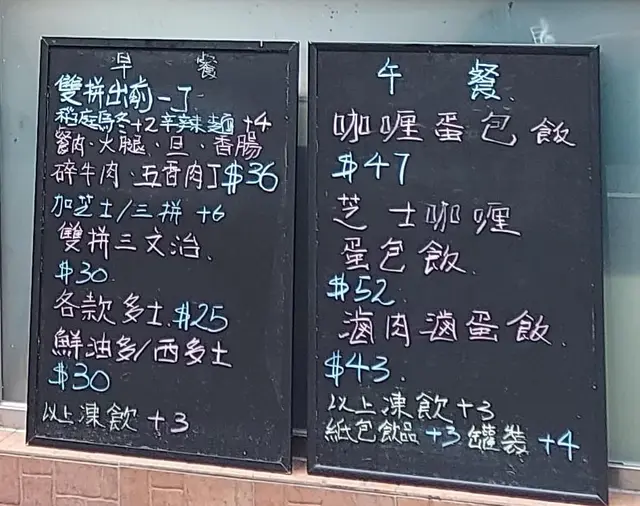 早 餐
雙拼出前一丁
稻庭烏冬+2辛辣麵+4
餐肉、火腿、旦、香腸
碎牛肉、五香肉丁$36
加芝士/三拼 +6
雙拼三文治.
$30
各款多士.$25
鮮油多/西多士
$30
以上凍飲 +3
午 餐.
咖喱蛋包飯
$47
芝士咖喱
蛋包飯.
$52
滷肉滷蛋飯.
$43.
以上凍飲+3
紙包飲品+3 罐裝 +4